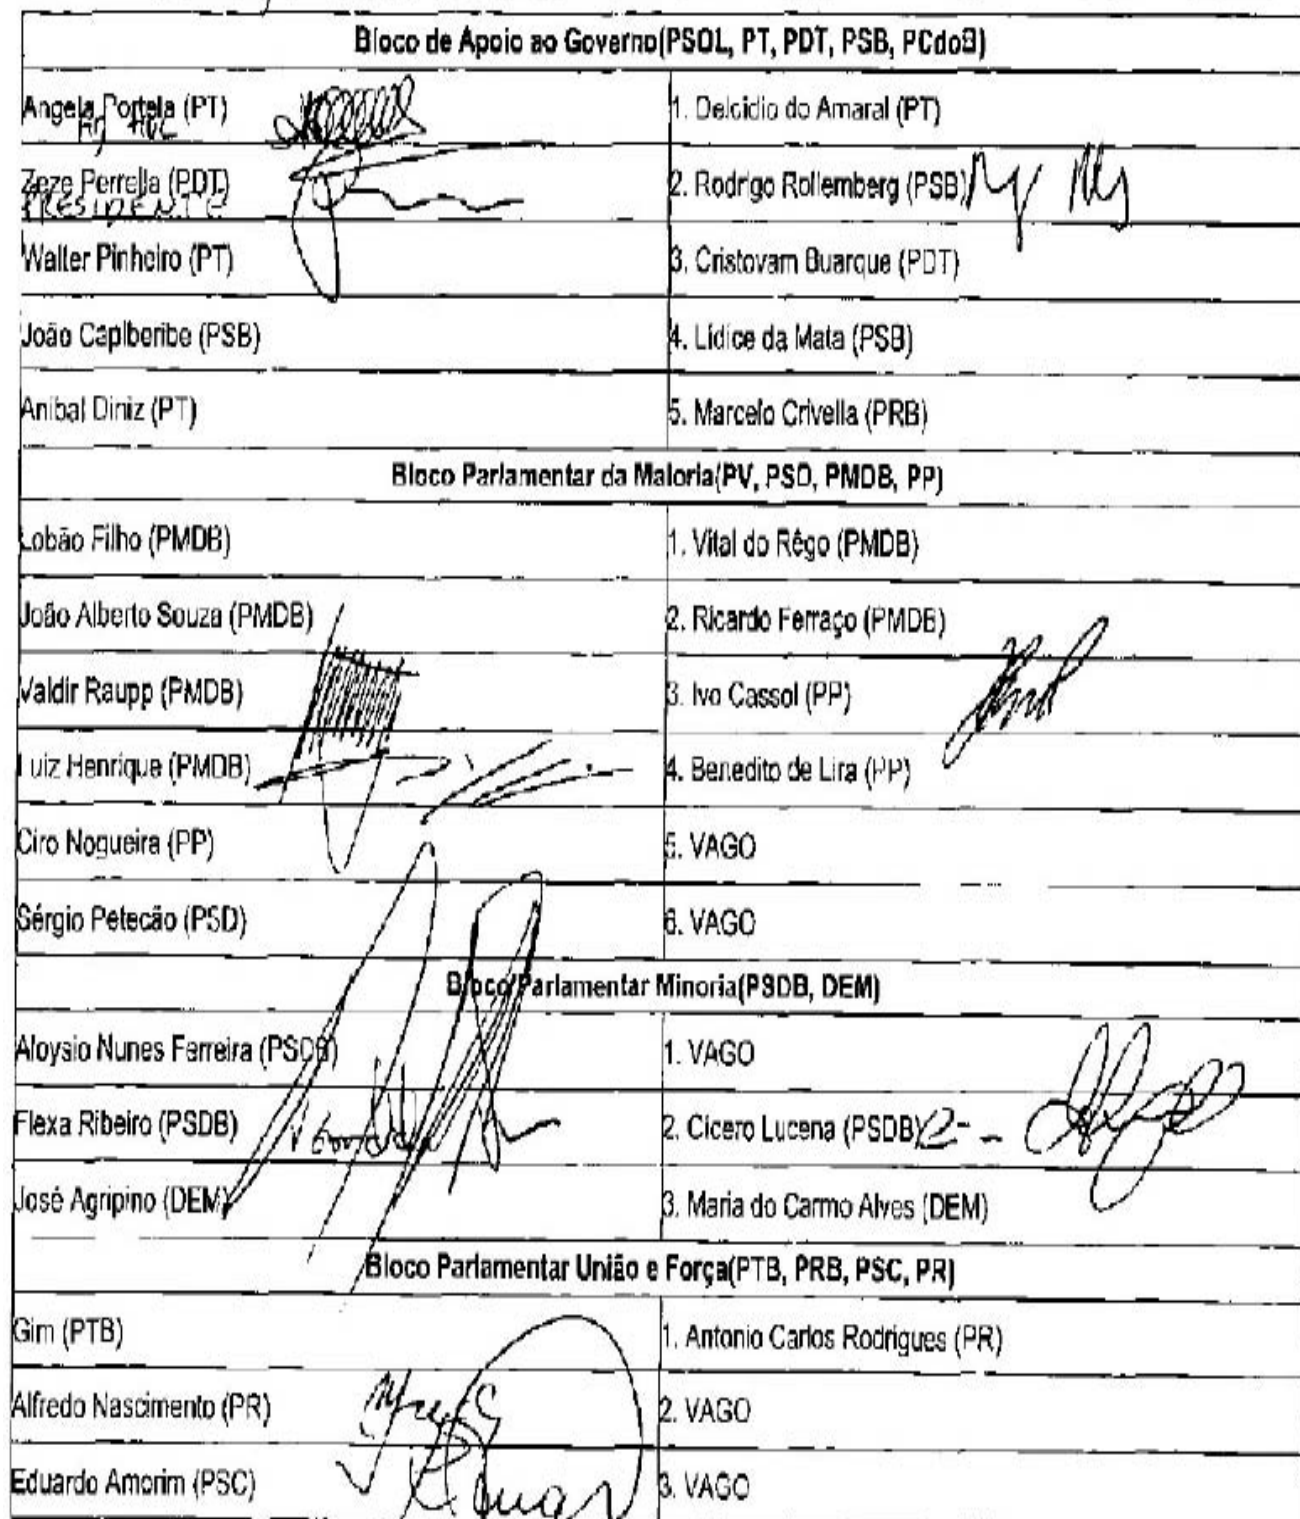 Bloco de Apoio ao Governo(PSOL, PT, PDT, PSB, PCdoB)
Angela Portela (PT) 1. Delcidio do Amaral (PT)
Zeze Perrella (PDT) 2. Rodrigo Rollemberg (PSB)
PRESIDENTE
Walter Pinheiro (PT) 3. Cristovam Buarque (PDT)
João Capiberibe (PSB) 4. Lídice da Mata (PSB)
Anibal Diniz (PT) 5. Marcelo Crivella (PRB)
Bloco Parlamentar da Maioria(PV, PSD, PMDB, PP)
Lobão Filho (PMDB) 1. Vital do Rêgo (PMDB)
João Alberto Souza (PMDB) 2. Ricardo Ferraço (PMDB)
Valdir Raupp (PMDB) 3. Ivo Cassol (PP)
Luiz Henrique (PMDB) 4. Benedito de Lira (PP)
Ciro Nogueira (PP) 5. VAGO
Sérgio Petecão (PSD) 6. VAGO
Bloco Parlamentar Minoria(PSDB, DEM)
Aloysio Nunes Ferreira (PSDB) 1. VAGO
Flexa Ribeiro (PSDB) 2. Cícero Lucena (PSDB)
José Agripino (DEM) 3. Maria do Carmo Alves (DEM)
Bloco Parlamentar União e Força(PTB, PRB, PSC, PR)
Gim (PTB) 1. Antonio Carlos Rodrigues (PR)
Alfredo Nascimento (PR) 2. VAGO
Eduardo Amorim (PSC) 3. VAGO